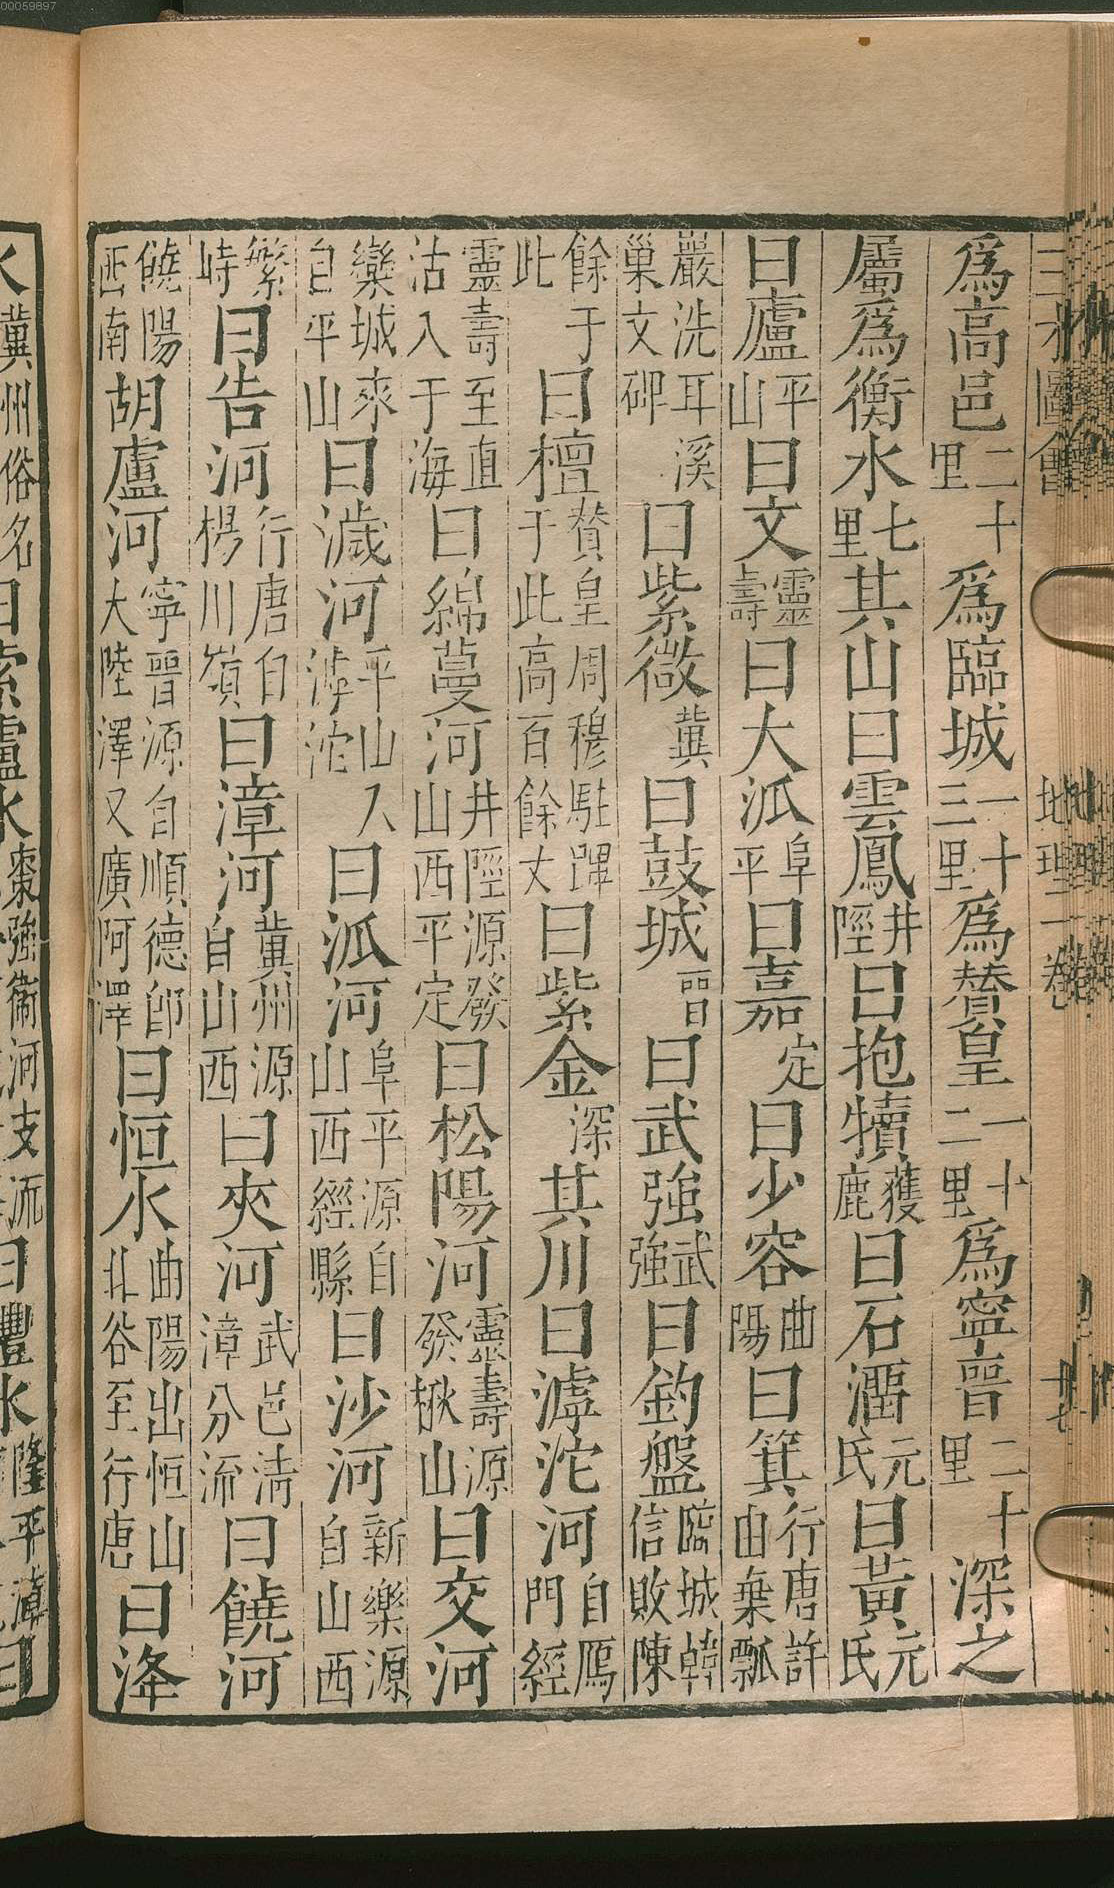 00059897
三才圖會 地理一卷 廿七
為高邑二十里為臨城一十三里為贊皇一十二里為寧晉二十里深之
屬為衡水七里其山曰雲鳳井陘曰抱犢獲鹿曰石潤元氏曰黃元氏
曰廬平山曰文靈壽曰大泒阜平曰嘉定曰少容曲陽曰箕行唐許由棄瓢
巖洗耳溪巢文碑曰紫微冀曰鼓城晉曰武強武強曰釣盤臨城韓信敗陳
餘于此曰檀贊皇周穆駐蹕于此高百餘丈曰紫金深其川曰滹沱河自鴈門經
靈壽至直沽入于海曰綿蔓河井陘源發山西平定曰松陽河靈壽源發楸山曰交河
欒城來自平山曰濊河平山入滹沱曰泒河阜平源自山西經縣曰沙河新樂源自山西
繁峙曰告河行唐自楊川嶺曰漳河冀州源自山西曰夾河武邑清漳分流曰饒河
饒陽西南胡盧河寧晉源自順德郎大陸澤又廣阿澤曰恒水曲陽出恒山北谷至行唐曰洚
水冀州俗名曰索盧水棗強衛河支流曰灃水隆平漳曰